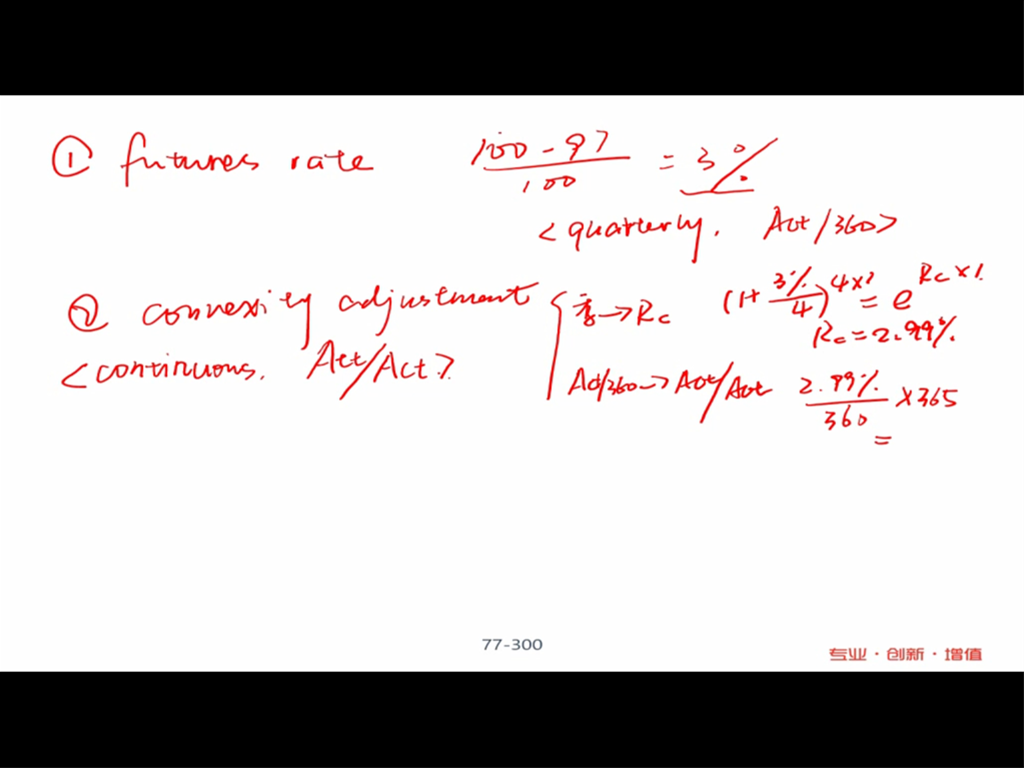 ① futures rate (100-97)/100 = 3%
<quarterly. Act/360>
② convexity adjustment
<continuous. Act/Act>
季→Rc (1+3%/4)^4×1 = e^Rc×1
Rc=2.99%
Act/360→Act/Act 2.99%/360 ×365
=
77-300
专业·创新·增值